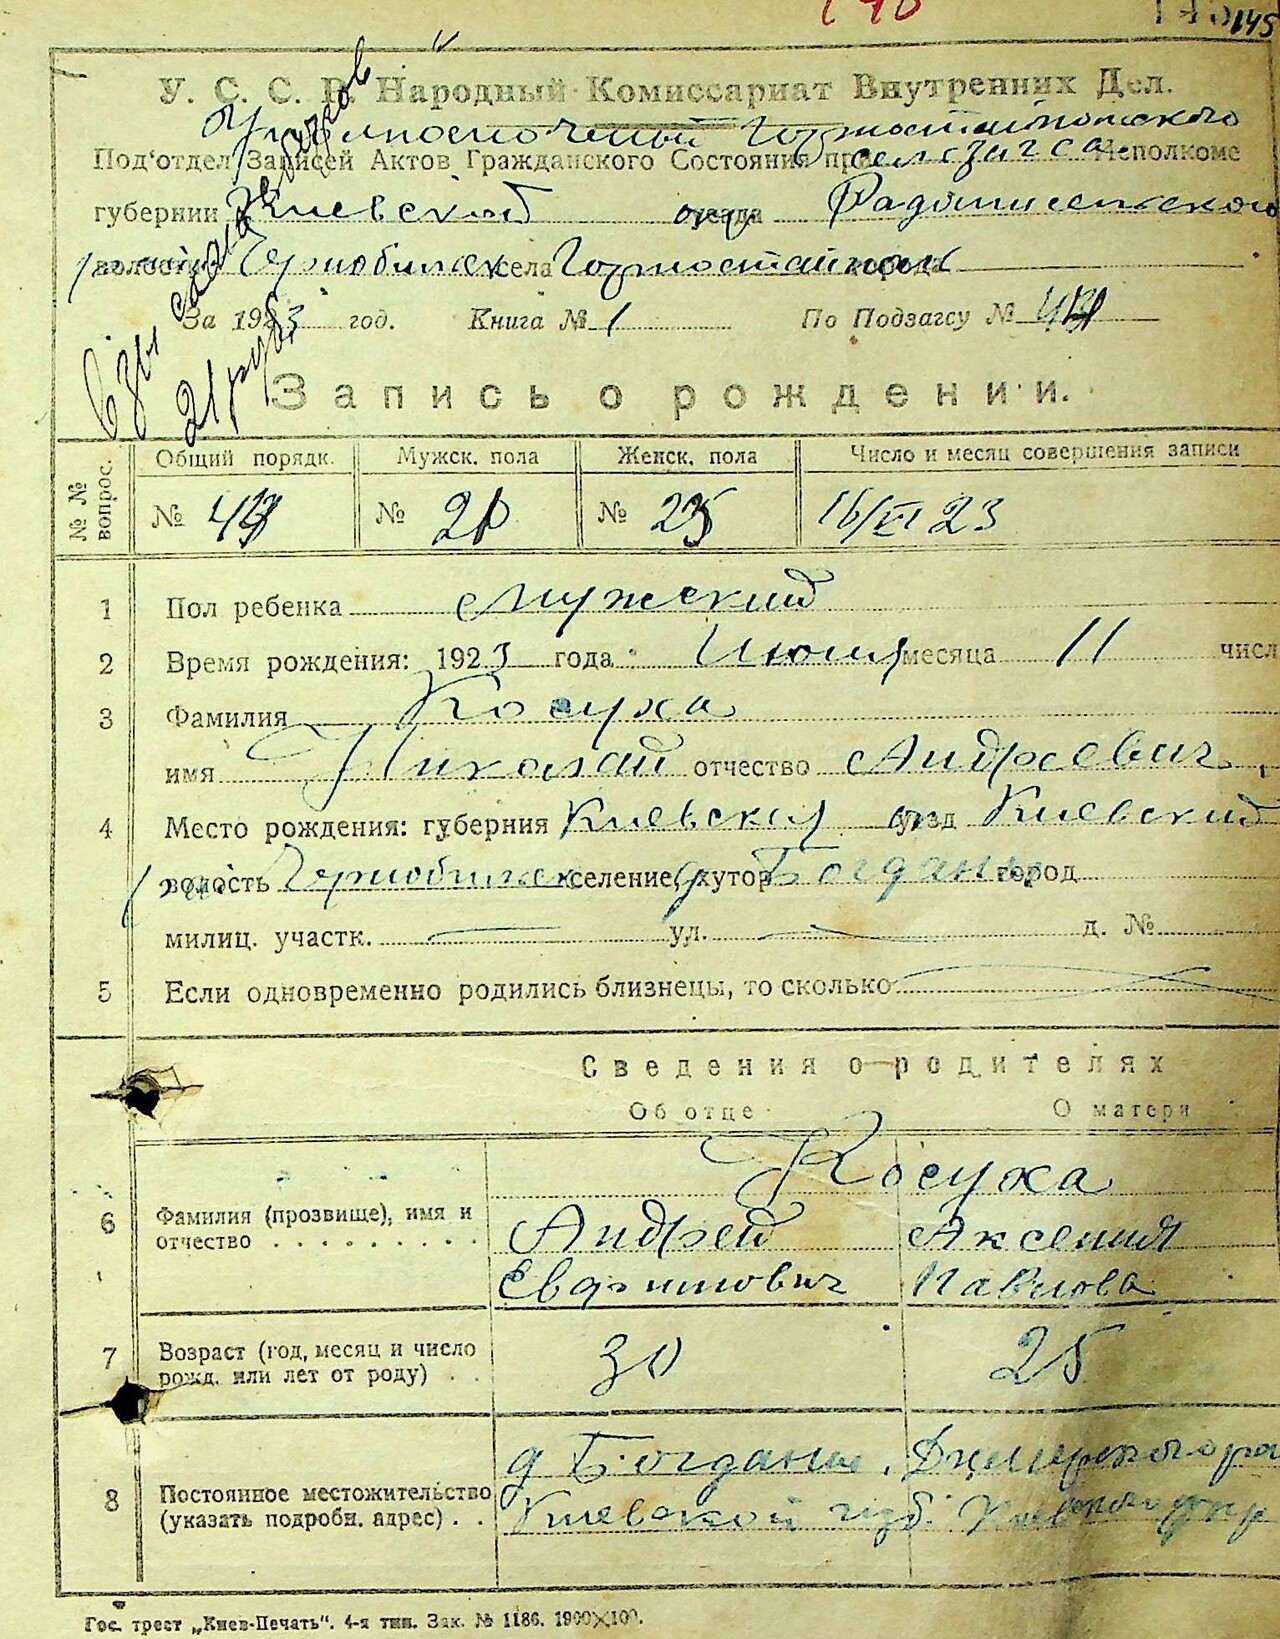 145
У. С. С. Р. Народный Комиссариат Внутренних Дел.
Уполномоченый Горностайпольского
Под'отдел Записей Актов Гражданского Состояния при сельзагса Исполкоме
губернии Киевской уезда окр Радомисельского
волости Чернобильск села Горностайполь
За 1923 год. Книга № 1 По Подзагсу №
21 руб
Запись о рождении.
№ № вопрос. Общий порядк. Мужск. пола Женск. пола Число и месяц совершения записи
№ № № 25 16/VI 23
1 Пол ребенка мужский
2 Время рождения: 1923 года Июня месяца 11 числ
3 Фамилия Косуха
имя Николай отчество Андреевич
4 Место рождения: губерния Киевская уезд Киевский
волость Чернобильск селение, хутор д Богданы город
милиц. участк. ул. д. №
5 Если одновременно родились близнецы, то сколько
Сведения о родителях
Об отце О матери
Косуха
6 Фамилия (прозвище), имя и Андрей Аксения
отчество . . . . . . . . . Павлова
7 Возраст (год, месяц и число 30 25
рожд. или лет от роду) . .
д Богданы, Димерского ра
8 Постоянное местожительство
(указать подробн. адрес) . . Киевской губ.
Гос. трест „Киев-Печать". 4-я тип. Зак. № 1186. 1900×100.